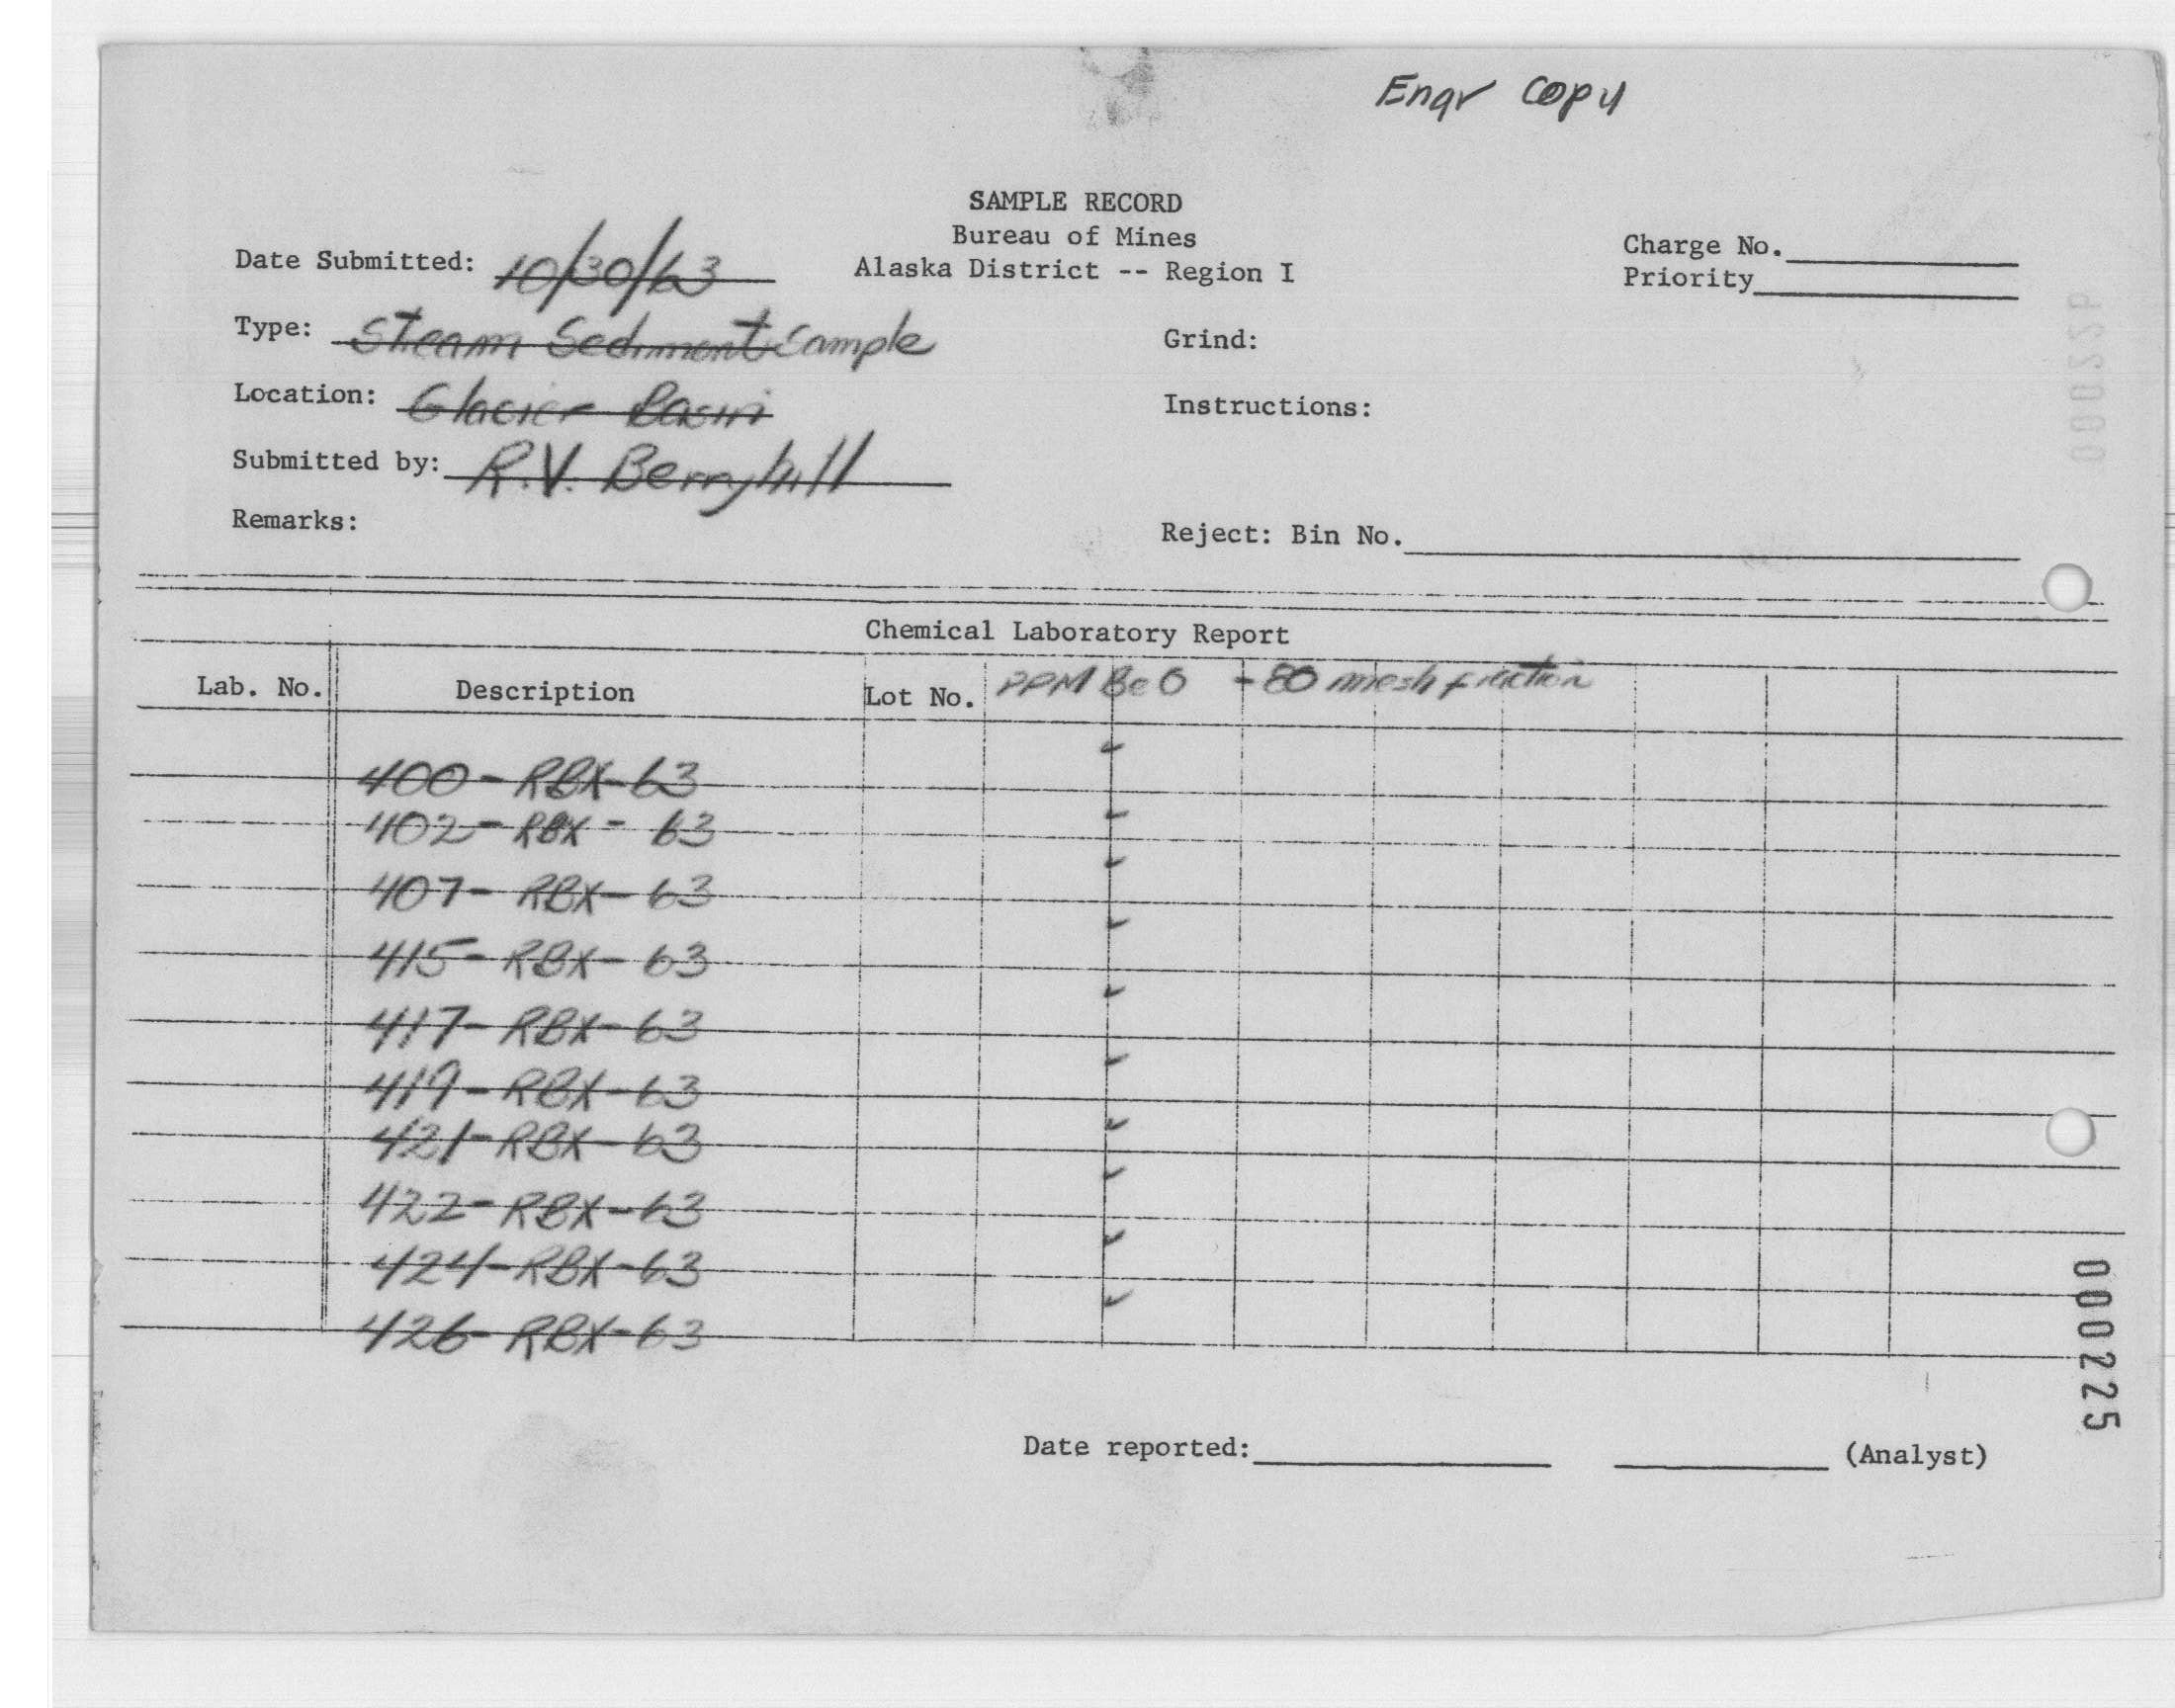 Engr Copy
SAMPLE RECORD
Bureau of Mines
Alaska District -- Region I
Charge No.
Priority
Date Submitted: 10/30/63
Type: Stream Sediment Sample
Grind:
Location: Glacier Basin
Instructions:
Submitted by: R.V. Berryhill
Remarks:
Reject: Bin No.
000226
Chemical Laboratory Report
Lab. No. Description Lot No. PPM BeO -80 mesh fraction
400-RBX-63 ✓
402-RBX-63 ✓
407-RBX-63 ✓
415-RBX-63 ✓
417-RBX-63 ✓
419-RBX-63 ✓
421-RBX-63 ✓
422-RBX-63 ✓
424-RBX-63 ✓
426-RBX-63 ✓
000225
Date reported: (Analyst)